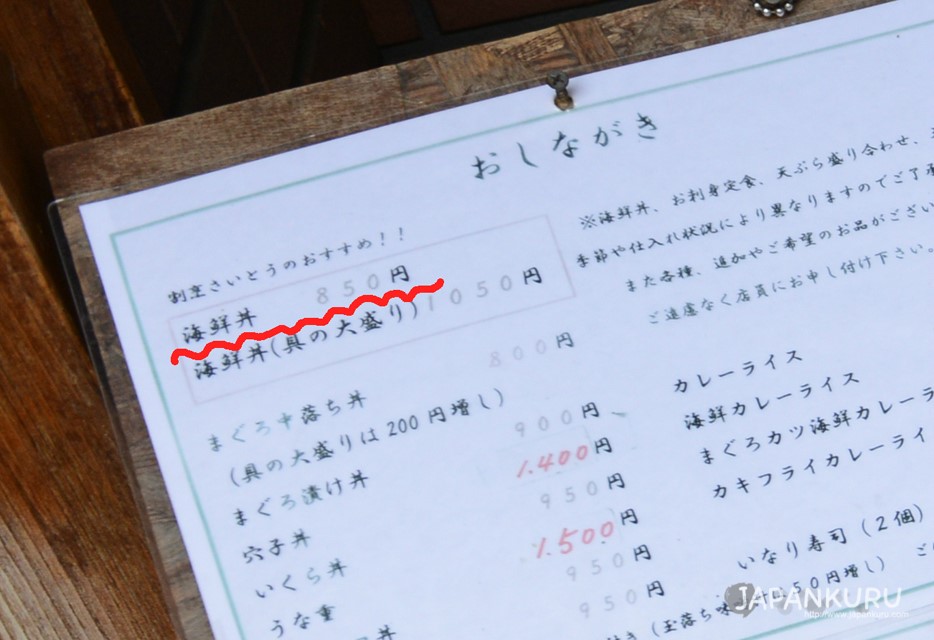 おしながき
割烹さいとうのおすすめ！！
海鮮丼 850円
海鮮丼(具の大盛り) 1050円
まぐろ中落ち丼 800円
(具の大盛りは200円増し)
まぐろ漬け丼 900円
穴子丼 1.400円
いくら丼 950円
うな重 1.500円
丼 950円
950円
※海鮮丼、お刺身定食、天ぷら盛り合わせ、
季節や仕入れ状況により異なりますのでご了承
また各種、追加やご希望のお品がござい
ご遠慮なく店員にお申し付け下さい。
カレーライス
海鮮カレーライス
まぐろカツ海鮮カレーラ
カキフライカレーライ
いなり寿司(2個)
50円増し)
JAPANKURU